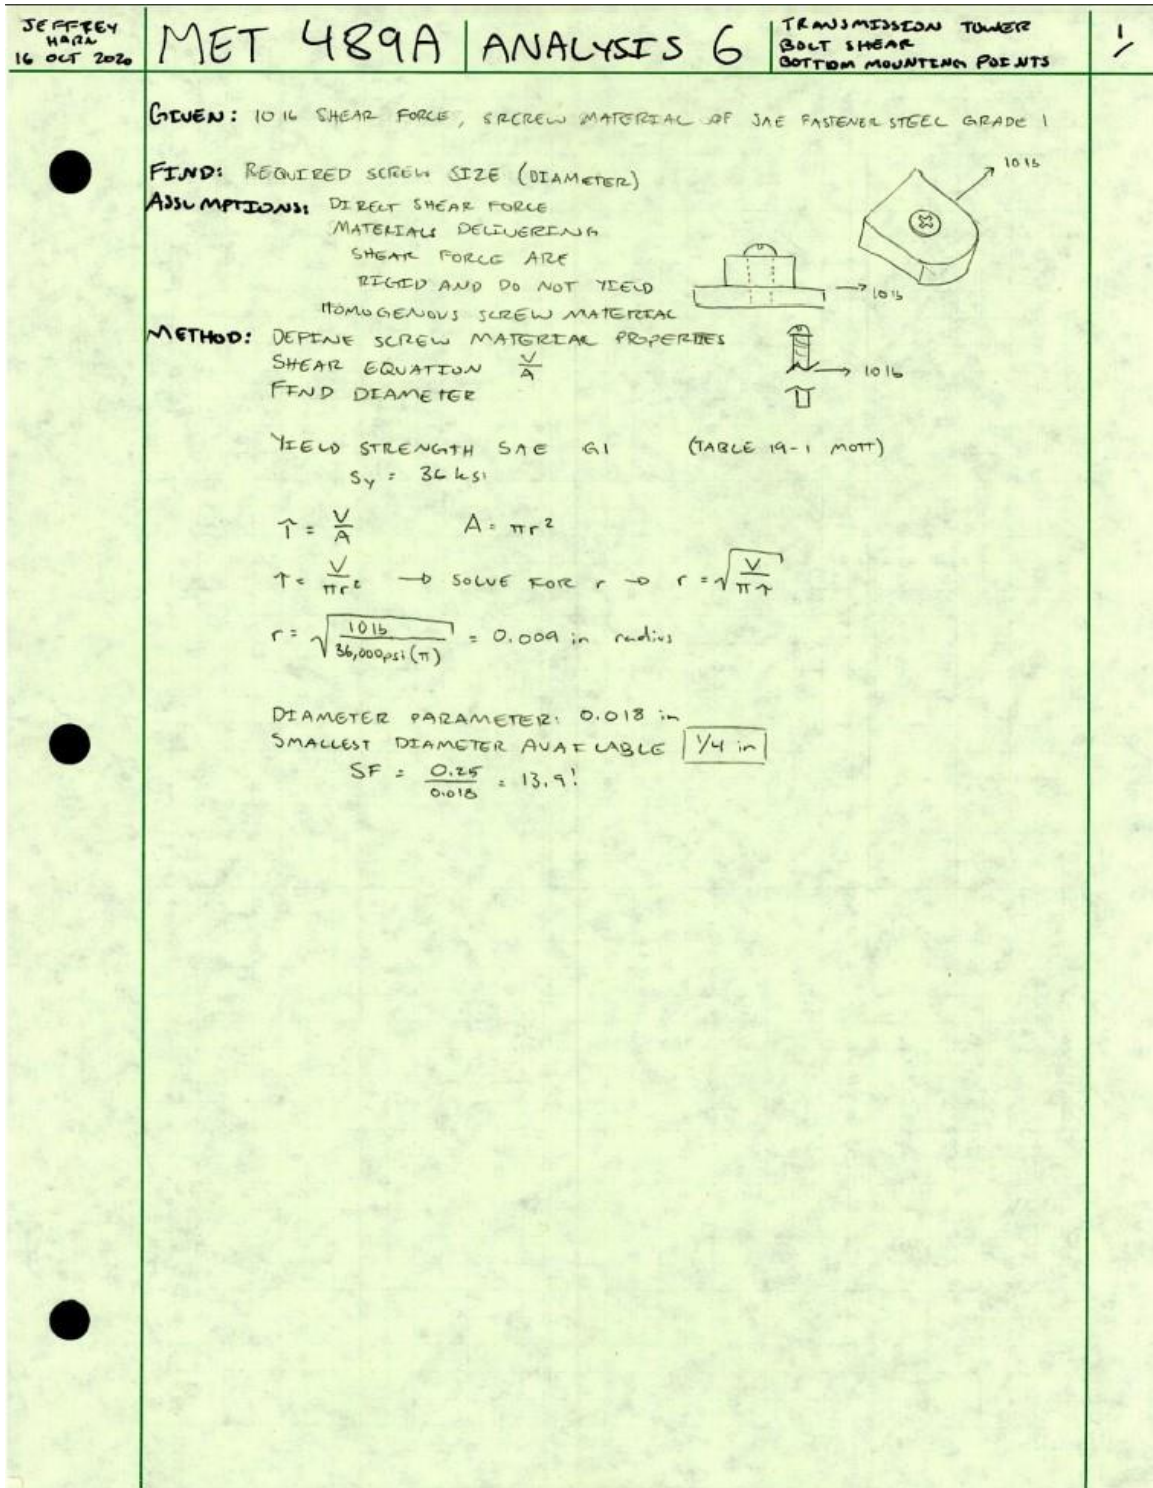 JEFFREY
HARN
16 OCT 2020
MET 489A
ANALYSIS 6
TRANSMISSION TOWER
BOLT SHEAR
BOTTOM MOUNTING POINTS
1/
GIVEN: 10 lb SHEAR FORCE, SRCREW MATERIAL OF SAE FASTENER STEEL GRADE 1
FIND: REQUIRED SCREW SIZE (DIAMETER)
10 lb
ASSUMPTIONS: DIRECT SHEAR FORCE
MATERIALS DELIVERING
SHEAR FORCE ARE
RIGID AND DO NOT YIELD
10 lb
HOMOGENOUS SCREW MATERIAL
METHOD: DEFINE SCREW MATERIAL PROPERTIES
SHEAR EQUATION V/A
10 lb
FIND DIAMETER
YIELD STRENGTH SAE G1 (TABLE 19-1 MOTT)
Sy = 36 ksi
τ = V/A A = πr²
τ = V/πr² → SOLVE FOR r → r = √(V/πτ)
r = √(10 lb/36,000psi(π)) = 0.009 in radius
DIAMETER PARAMETER: 0.018 in
SMALLEST DIAMETER AVAILABLE 1/4 in
SF = 0.25/0.018 = 13.9!